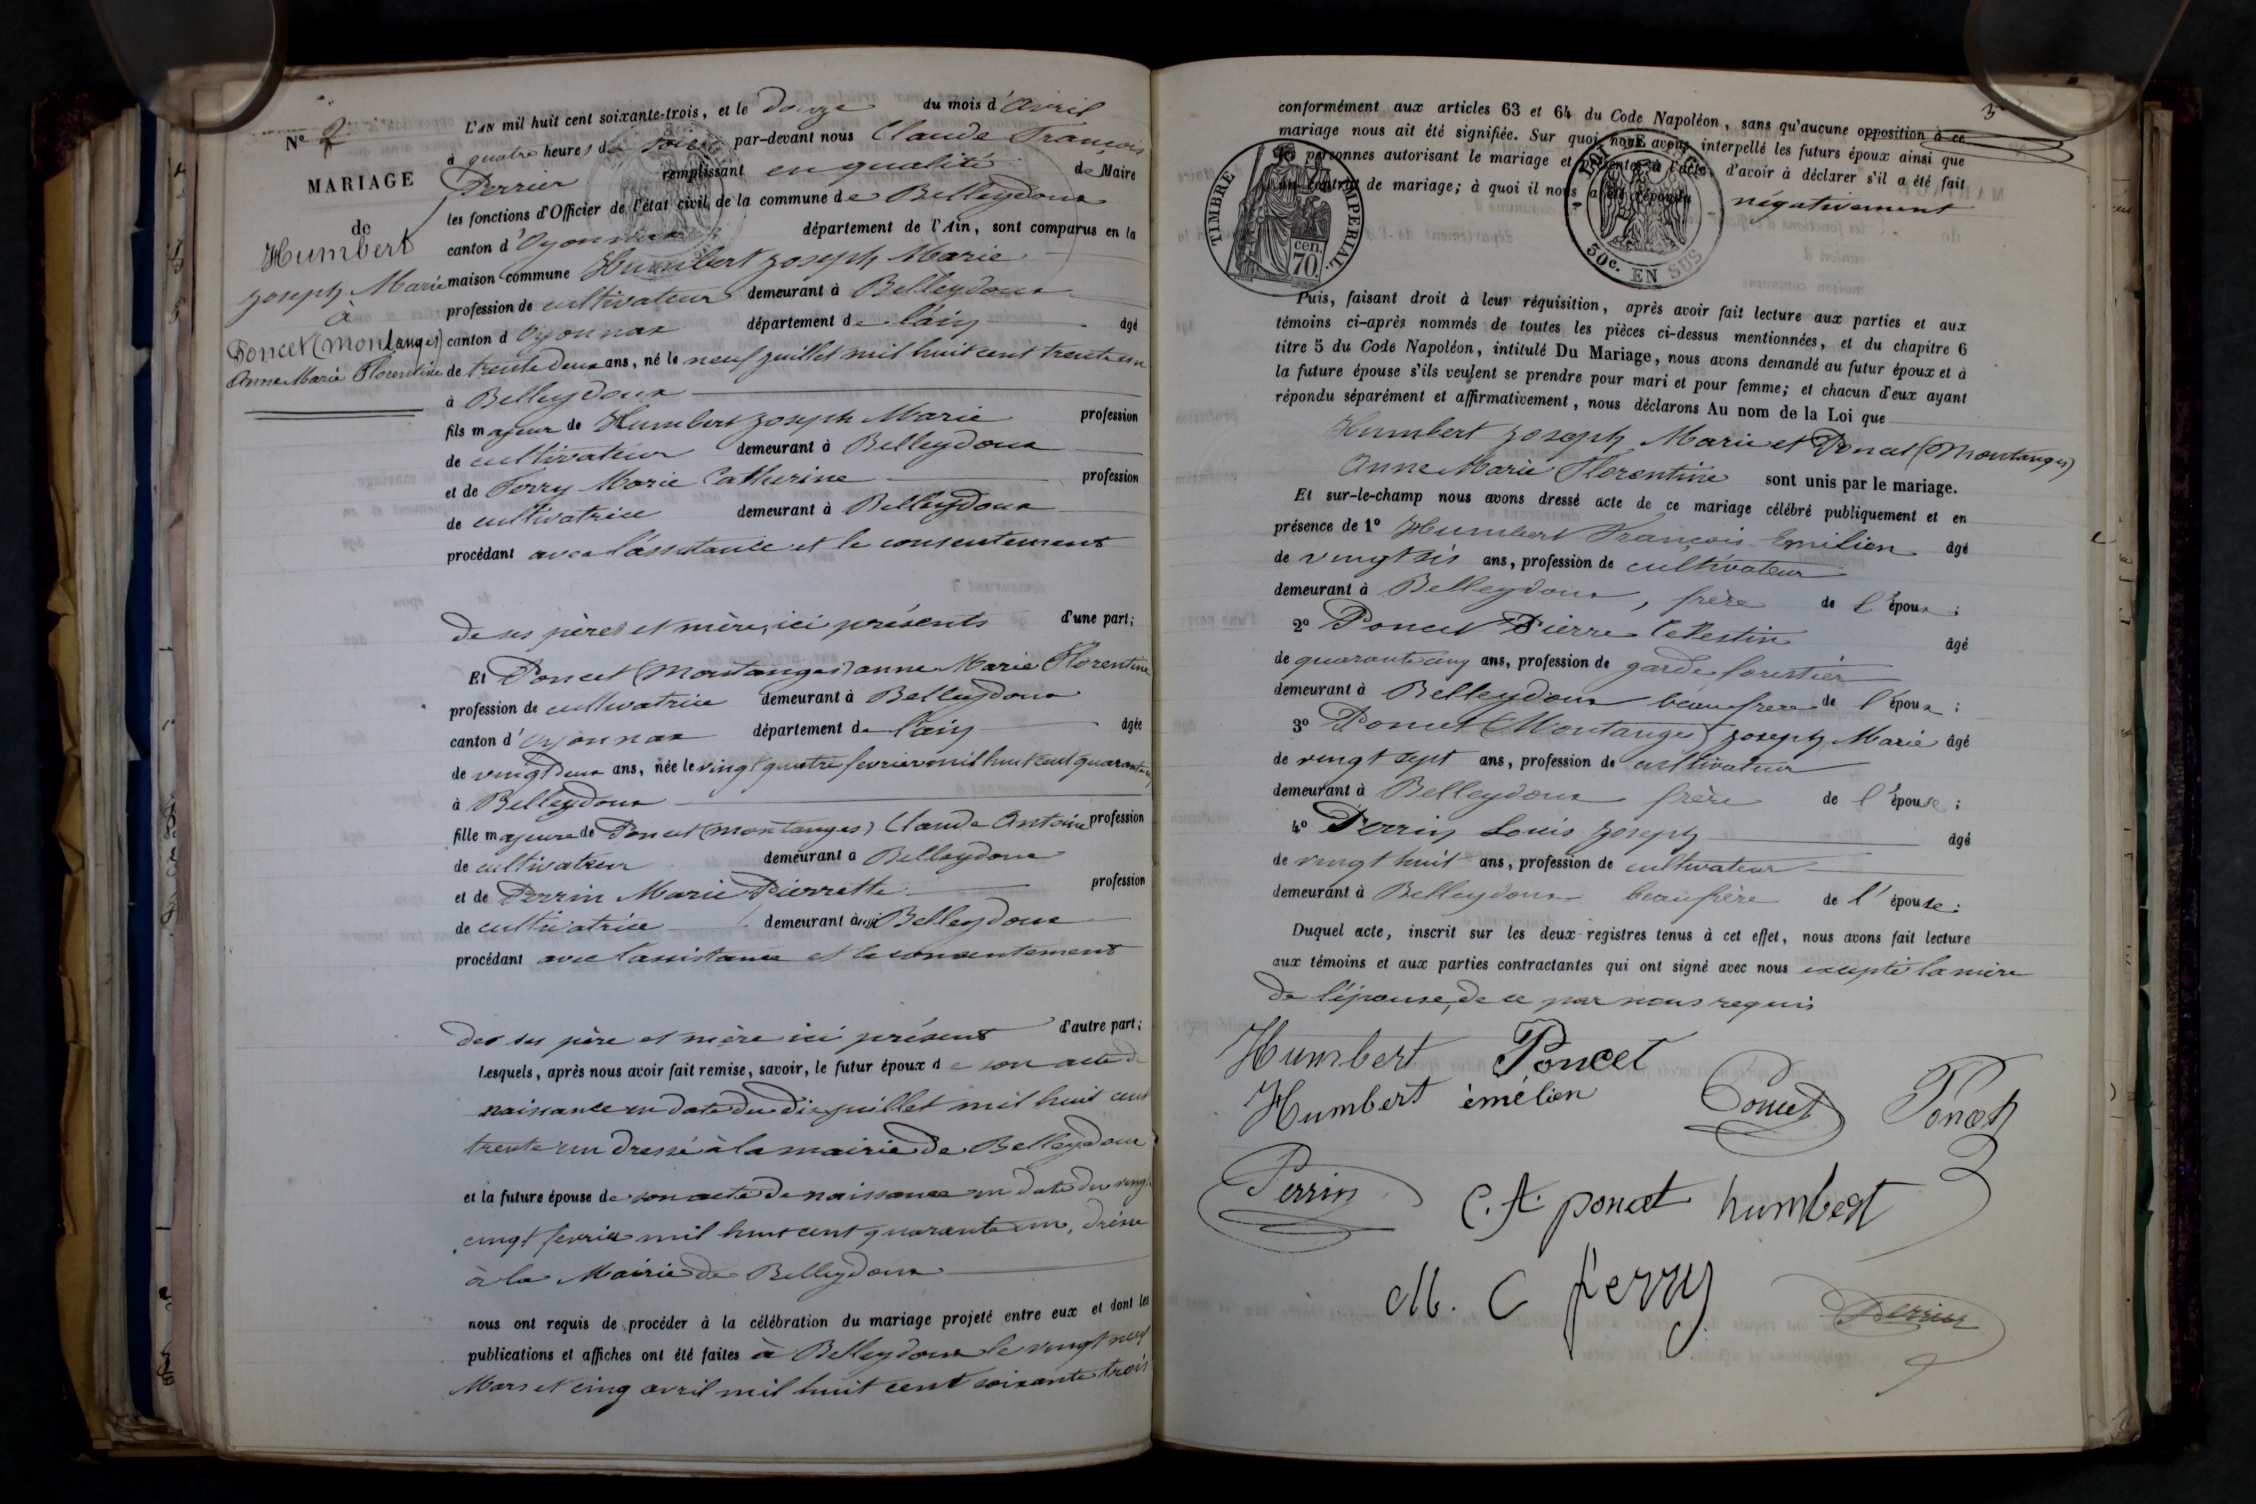 N° 2
MARIAGE
de
Humbert
Joseph Marie
à
Poncet (Montanges)
Anne Marie Florentine
L'AN mil huit cent soixante-trois, et le Douze du mois d'Avril
à quatre heures du soir par-devant nous Claude François
Perrier remplissant en qualité de Maire
les fonctions d'Officier de l'état civil de la commune de Belleydoux
canton d'Oyonnax département de l'Ain, sont comparus en la
maison commune Humbert Joseph Marie
profession de cultivateur demeurant à Belleydoux
canton d'Oyonnax département de l'ain âgé
de trente deux ans, né le neuf juillet mil huit cent trente un
à Belleydoux
fils majeur de Humbert Joseph Marie profession
de cultivateur demeurant à Belleydoux
et de Ferry Marie Catherine profession
de cultivatrice demeurant à Belleydoux
procédant avec l'assistance et le consentement
de ses pères et mère, ici présents d'une part;
Et Poncet (Montanges) anne Marie Florentine
profession de cultivatrice demeurant à Belleydoux
canton d'Oyonnax département de l'ain âgée
de vingt deux ans, née le vingt quatre fevrier mil huit cent quarante un
à Belleydoux
fille majeure de Poncet (Montanges) Claude Antoine profession
de cultivateur demeurant à Belleydoux
et de Perrin Marie Pierrette profession
de cultivatrice demeurant à Belleydoux
procédant avec l'assistance et le consentement
des ses père et mère ici présent d'autre part;
Lesquels, après nous avoir fait remise, savoir, le futur époux de son acte de
naissance en date du dix juillet mil huit cent
trente un dressé à la mairie de Belleydoux
et la future épouse de son acte de naissance en date du vingt
cinq fevrier mil huit cent quarante un, dressé
à la Mairie de Belleydoux
nous ont requis de procéder à la célébration du mariage projeté entre eux et dont les
publications et affiches ont été faites à Belleydoux le vingt neuf
Mars et cinq avril mil huit cent soixante trois
3
conformément aux articles 63 et 64 du Code Napoléon, sans qu'aucune opposition à ce
mariage nous ait été signifiée. Sur quoi, nous avons interpellé les futurs époux ainsi que
les personnes autorisant le mariage et présentes à l'acte, d'avoir à déclarer s'il a été fait
un contrat de mariage; à quoi il nous a été répondu négativement
TIMBRE IMPERIAL
70 cen.
50c. EN SUS
Puis, faisant droit à leur réquisition, après avoir fait lecture aux parties et aux
témoins ci-après nommés de toutes les pièces ci-dessus mentionnées, et du chapitre 6
titre 5 du Code Napoléon, intitulé Du Mariage, nous avons demandé au futur époux et à
la future épouse s'ils veulent se prendre pour mari et pour femme; et chacun d'eux ayant
répondu séparément et affirmativement, nous déclarons Au nom de la Loi que
Humbert Joseph Marie et Poncet (Montanges)
Anne Marie Florentine sont unis par le mariage.
Et sur-le-champ nous avons dressé acte de ce mariage célébré publiquement et en
présence de 1° Humbert François Emilien âgé
de vingt six ans, profession de cultivateur
demeurant à Belleydoux, frère de l'époux;
2° Poncet Pierre Celestin âgé
de quarante cinq ans, profession de garde forestier
demeurant à Belleydoux beaufrere de l'époux;
3° Poncet (Montanges) Joseph Marie âgé
de vingt sept ans, profession de cultivateur
demeurant à Belleydoux frère de l'épouse;
4° Perrin Louis Joseph âgé
de vingt huit ans, profession de cultivateur
demeurant à Belleydoux beaufrère de l'épouse:
Duquel acte, inscrit sur les deux registres tenus à cet effet, nous avons fait lecture
aux témoins et aux parties contractantes qui ont signé avec nous excepté la mère
de l'épouse, de ce par nous requis
Humbert Poncet
Humbert émélien Poncet Poncet
Perrin C. A. poncet humbert
M. C ferry
Perrier